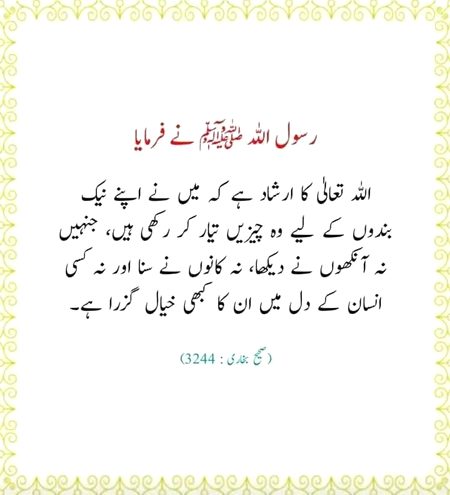 رسول اللہ ﷺ نے فرمایا
اللہ تعالیٰ کا ارشاد ہے کہ میں نے اپنے نیک
بندوں کے لیے وہ چیزیں تیار کر رکھی ہیں، جنہیں
نہ آنکھوں نے دیکھا، نہ کانوں نے سنا اور نہ کسی
انسان کے دل میں ان کا کبھی خیال گزرا ہے۔
(صحیح بخاری : 3244)